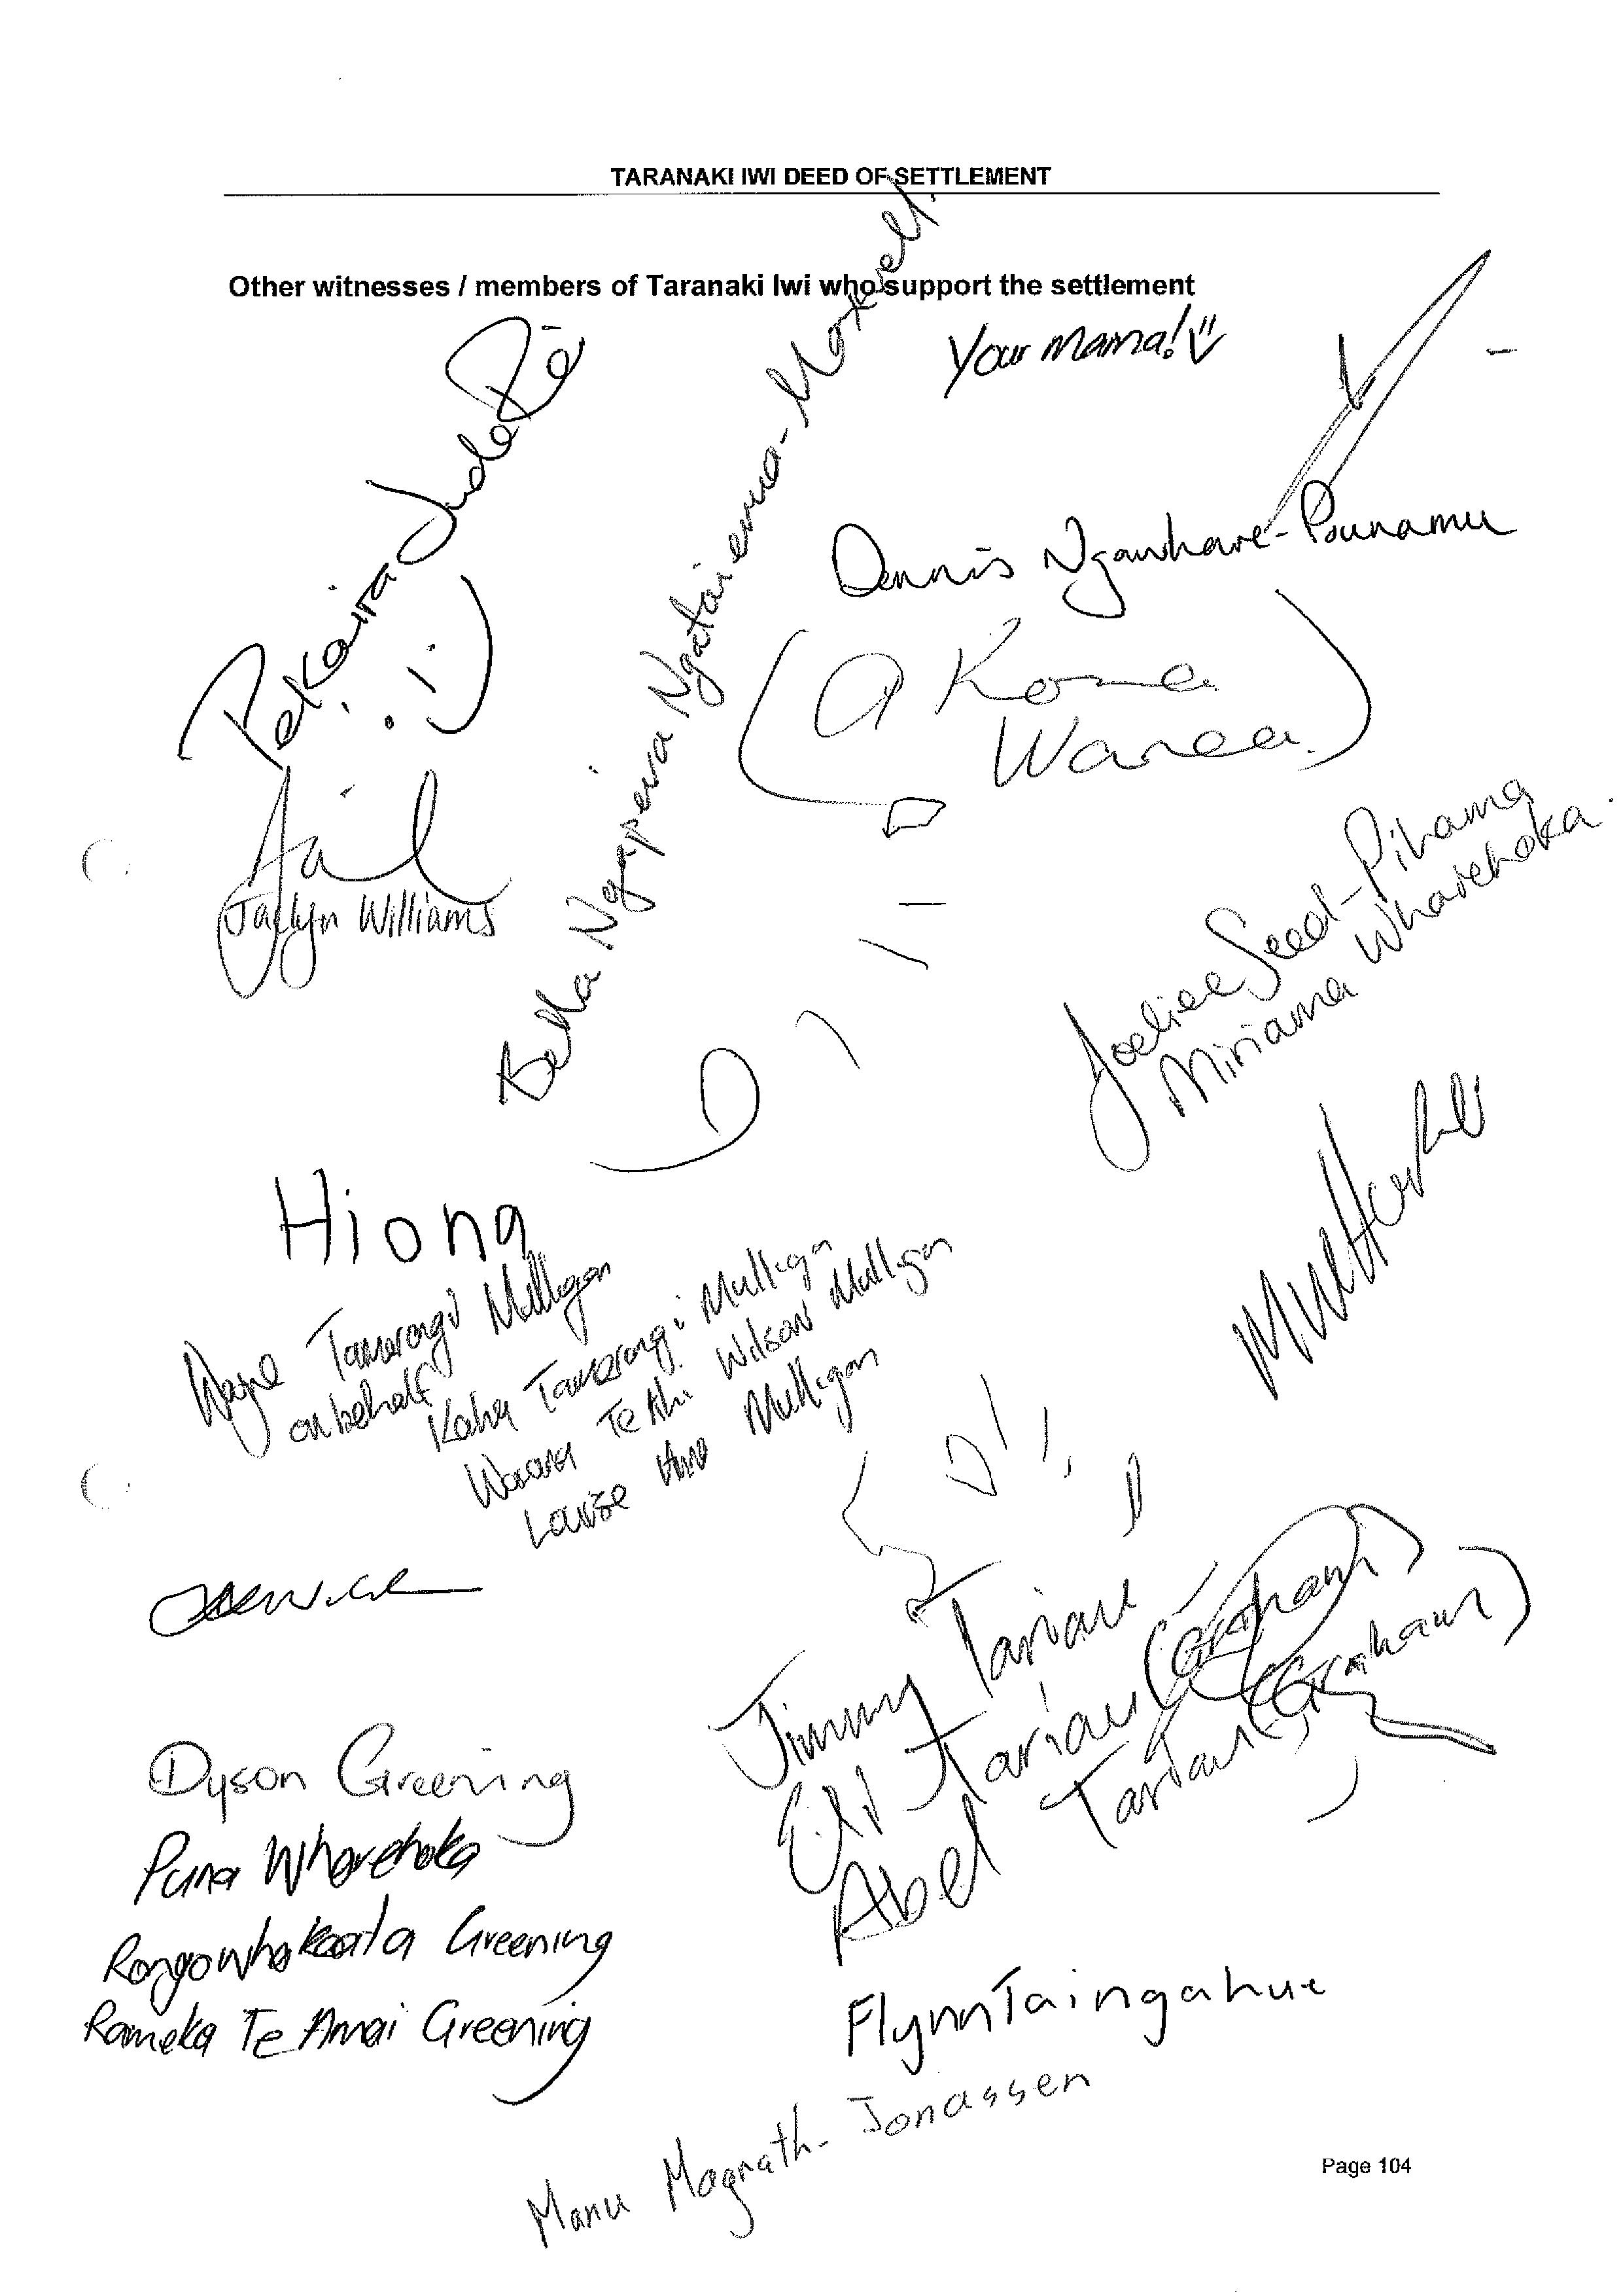 TARANAKI IWI DEED OF SETTLEMENT
Other witnesses / members of Taranaki Iwi who support the settlement
Your Mama!
Pekaira Jude Rē
Bella Ngapera Ngataierua-Moxwell.
Dennis Ngawhare-Pounamu
(a Koma
Warea.)
Jaclyn Williams
Joeliee Seed-Pihama
Miriama Wharehoka.
Hiona
Wayne Tamarangi Mulligan
on behalf
Kaha Tamarangi Mulligan
Te Ahi Wilson Mulligan
Louise Mulligan
Jimmy Tariau
Eli Tariau (Graham)
Abel Tariau (Graham)
Dyson Greening
Puna Wharehoka
Rongowhakaata Greening
Rameka Te Amai Greening
Flynn Taingahue
Manu Magrath-Jonassen
Page 104